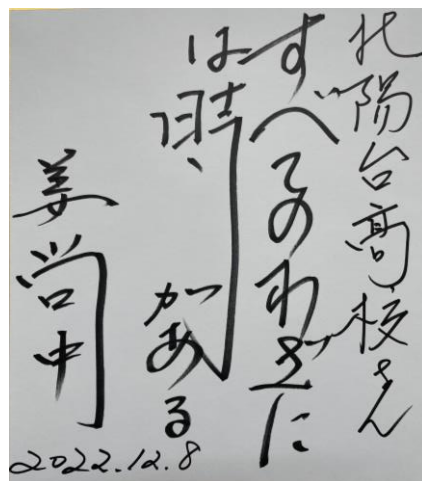 北陽台高校さん
すべてのわざに
は時がある
姜尚中
2022.12.8